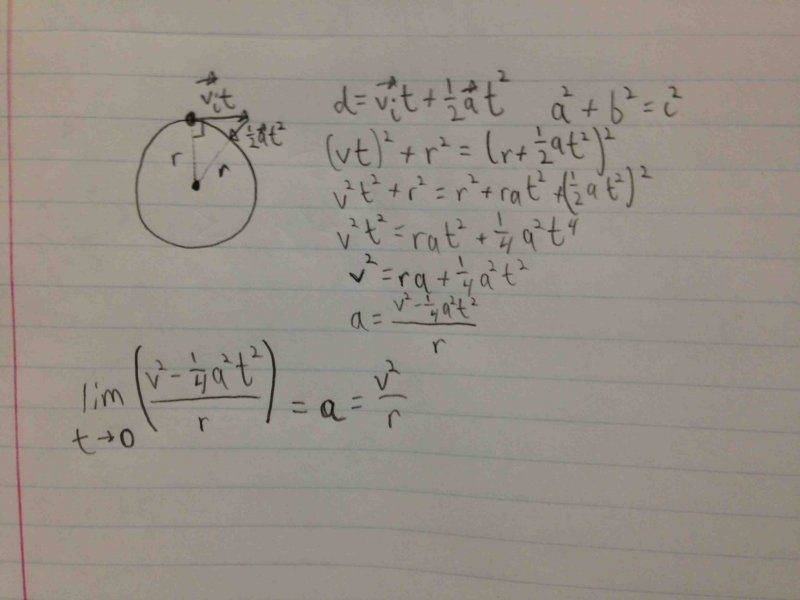 v⃗ᵢt
½a⃗t²
r
r
d = v⃗ᵢt + ½a⃗t² a² + b² = c²
(vt)² + r² = (r + ½at²)²
v²t² + r² = r² + rat² + (½at²)²
v²t² = rat² + ¼a²t⁴
v² = ra + ¼a²t²
a = (v² - ¼a²t²) / r
lim t→0 ((v² - ¼a²t²) / r) = a = v²/r